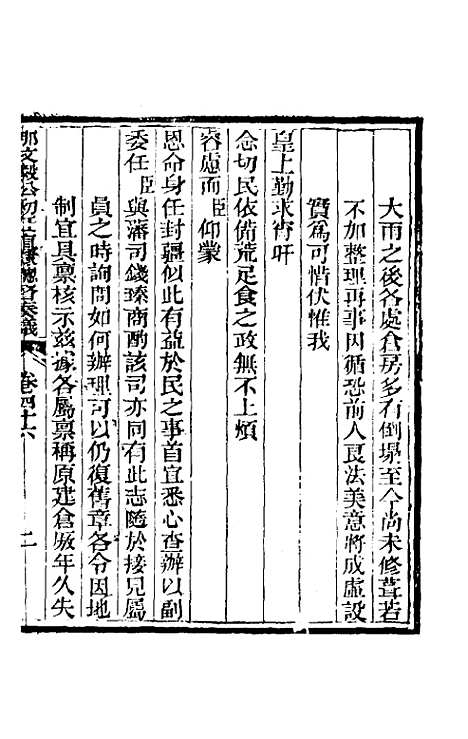 大雨之後各處倉房多有倒塌至今尚未修葺若
不加整理再事因循恐前人良法美意將成虛設
實爲可惜伏惟我
皇上勤求宵旰
念切民依備荒足食之政無不上煩
容慮而臣仰蒙
恩命身任封疆似此有益於民之事首宜悉心查辦以副
委任臣與藩司錢臻商酌該司亦同有此志隨於接見屬
員之時詢問如何辦理可以仍復舊章各令因地
制宜具稟核示茲據各屬稟稱原建倉厫年久失
那文毅公初任直隸總督奏議 卷四十六 二